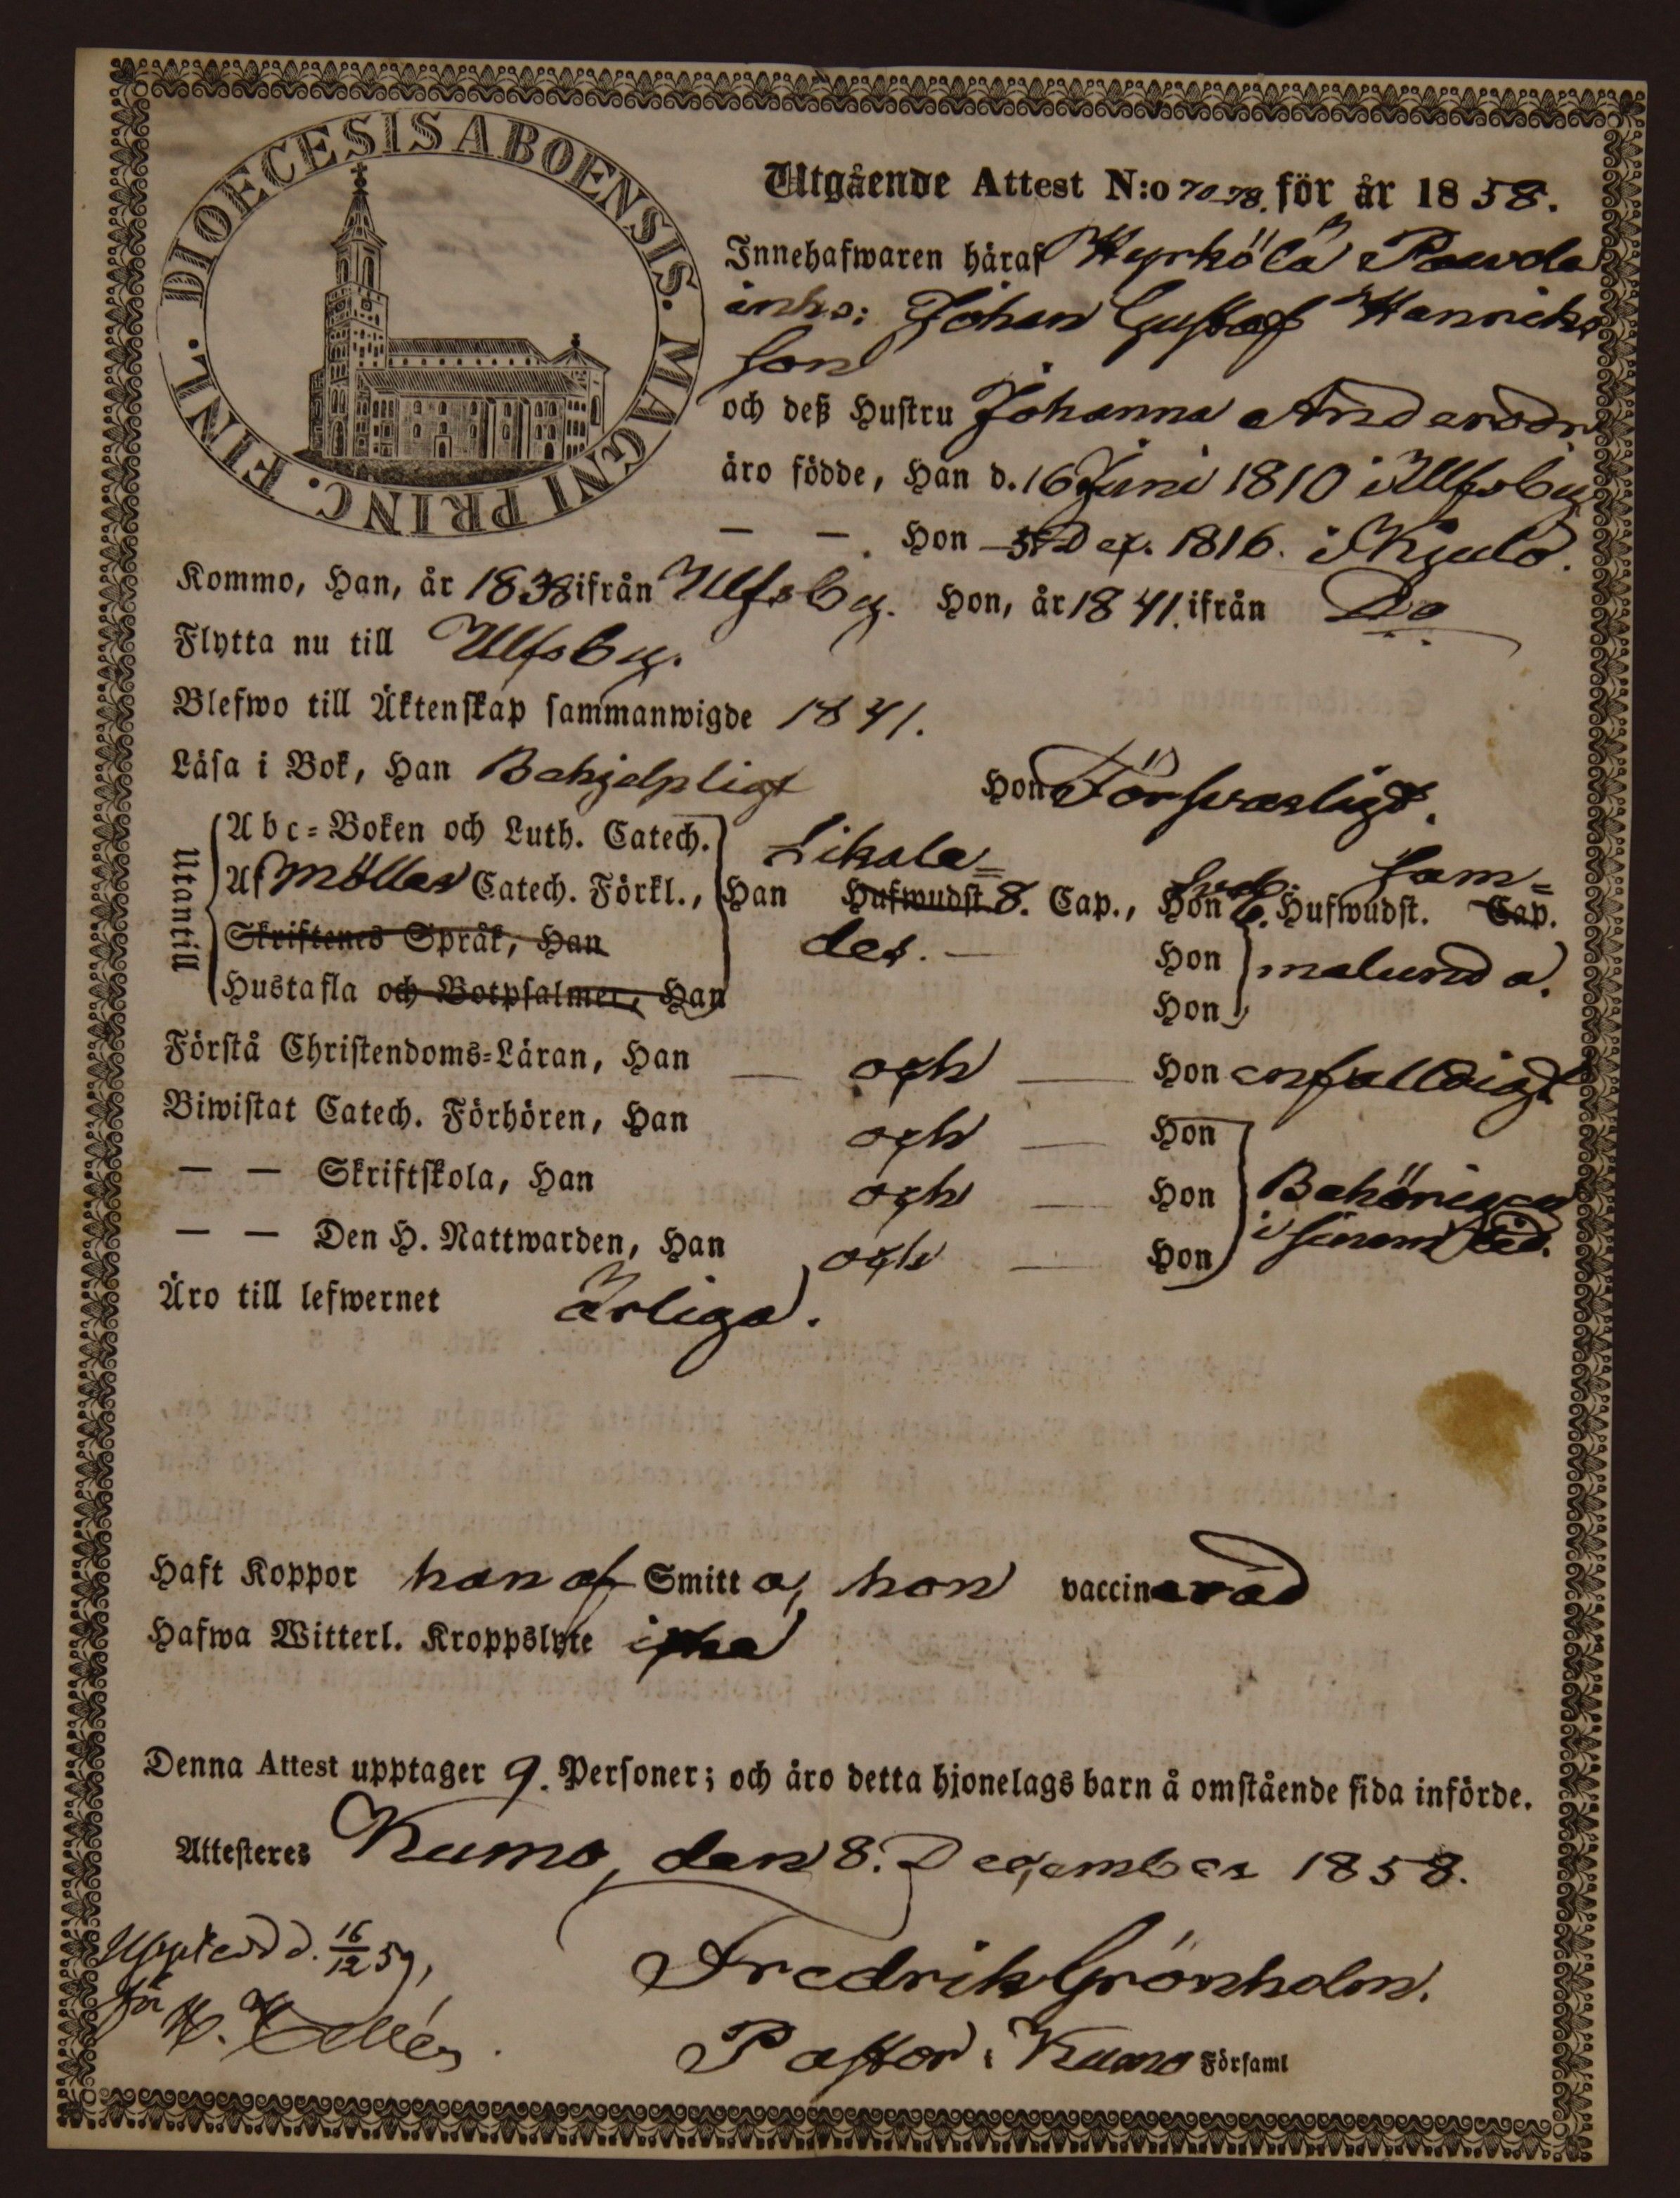 DIOECESIS ABOENSIS. MAGNI PRINC. FINL.
Utgående Attest N:o 70-78. för år 1858.
Innehafwaren häraf Hyrkölä
inhs: Johan Gustaf Hanricks
son
och deß Hustru Johanna Andersdr
äro födde, Han d. 16 Juni 1810 i Ulfsby
— — Hon Dec. 1816. i Kjulo.
Kommo, Han, år 1838 ifrån Ulfsby. Hon, år 1841. ifrån Do
Flytta nu till Ulfsby.
Blefwo till Äktenskap sammanwigde 1841.
Läsa i Bok, Han Behjelpligt Hon Försvarligt.
Utantill
Abc-Boken och Luth. Catech. Likale-
Af Möllers Catech. Förkl., Han Hufwudst. 8. Cap., Hon 6. Hufwudst. Cap. sam-
Skriftenes Språk, Han des. — Hon malunda.
Hustafla och Botpsalmer, Han Hon
Förstå Christendoms-Läran, Han — och — Hon enfalldigt
Biwistat Catech. Förhören, Han och — Hon
— — Skriftskola, Han och — Hon Behörigen
— — Den H. Nattwarden, Han och — Hon i sinom tid.
Äro till lefwernet ärliga.
Haft Koppor han af Smitta, hon vaccinerad
Hafwa Witterl. Kroppslyte icke
Denna Attest upptager 9. Personer; och äro detta hjonelags barn å omstående sida införde.
Attesteres Kumo, den 8. December 1858.
d. 16/12 59,
Fredrik Grönholm.
för
Pastor i Kumo Församl